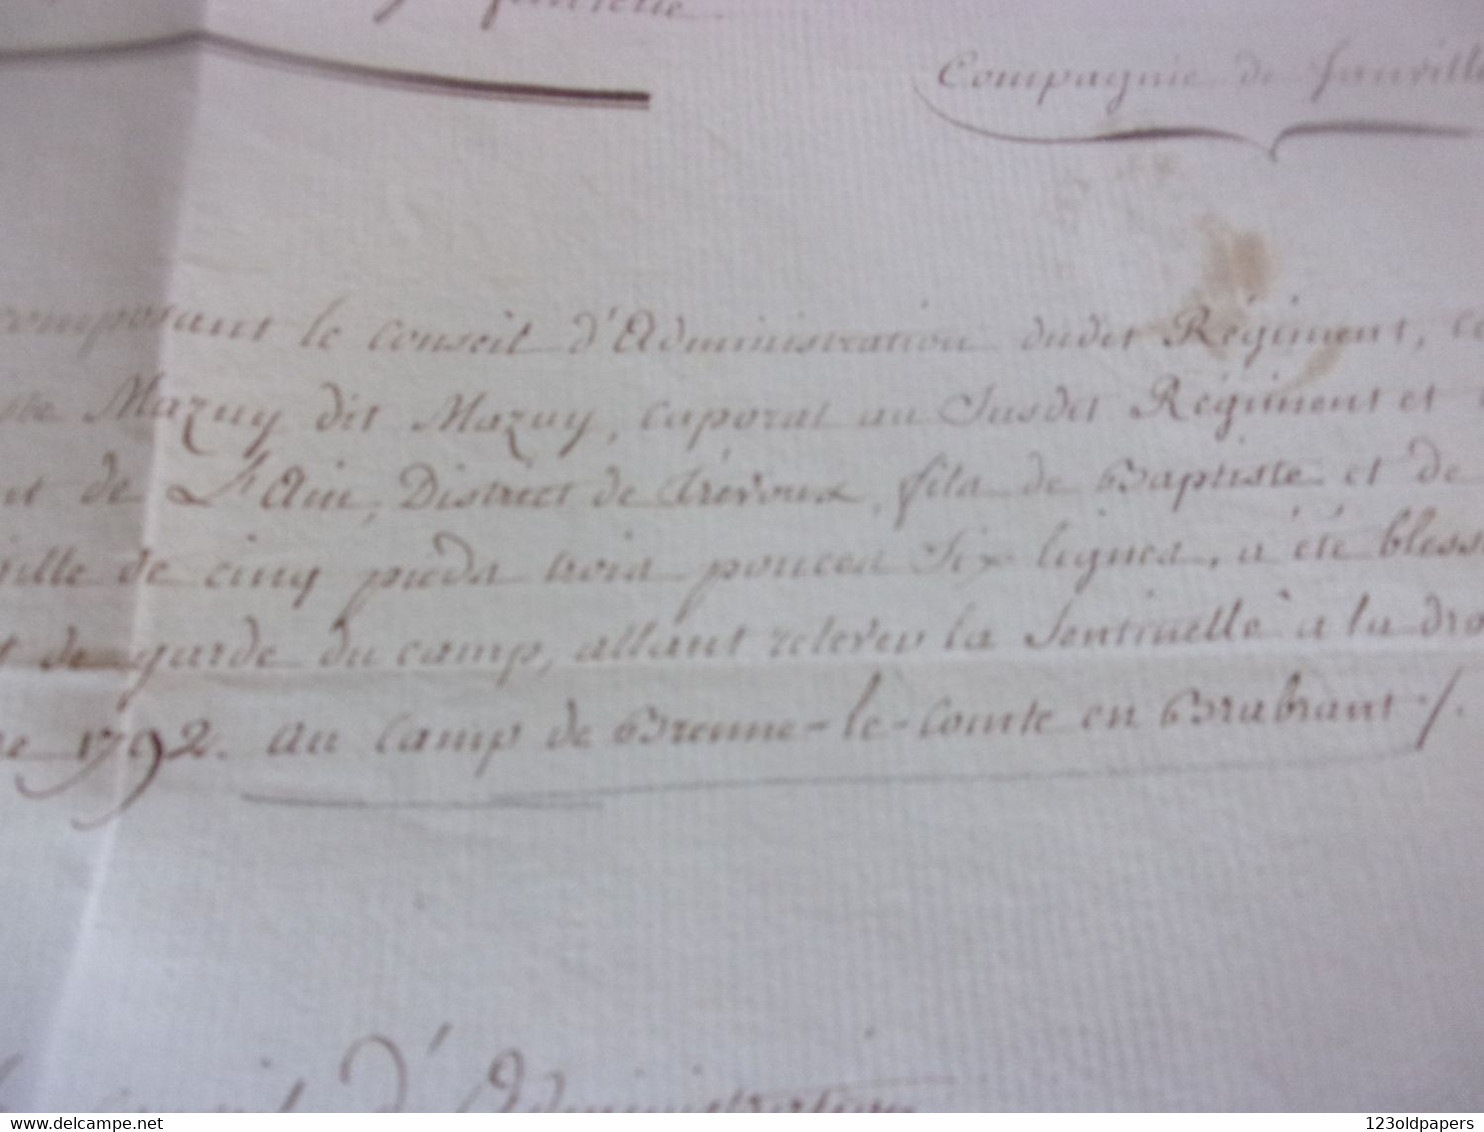 Compagnie de Janville
composant le Conseil d'Administration dudit Régiment, ce
ste Mazuy dit Mazuy, caporal au Susdit Régiment et
nt de L'Ain, District de Trévoux, fils de Baptiste et de
ille de cinq pieds trois pouces Six lignes, a été bless
t de garde du camp, allant relever la Sentinelle à la dro
re 1792. au Camp de Brenne-le-Comte en Brabrant ./.
Conseil d'Administration
www.delcampe.net
123oldpapers